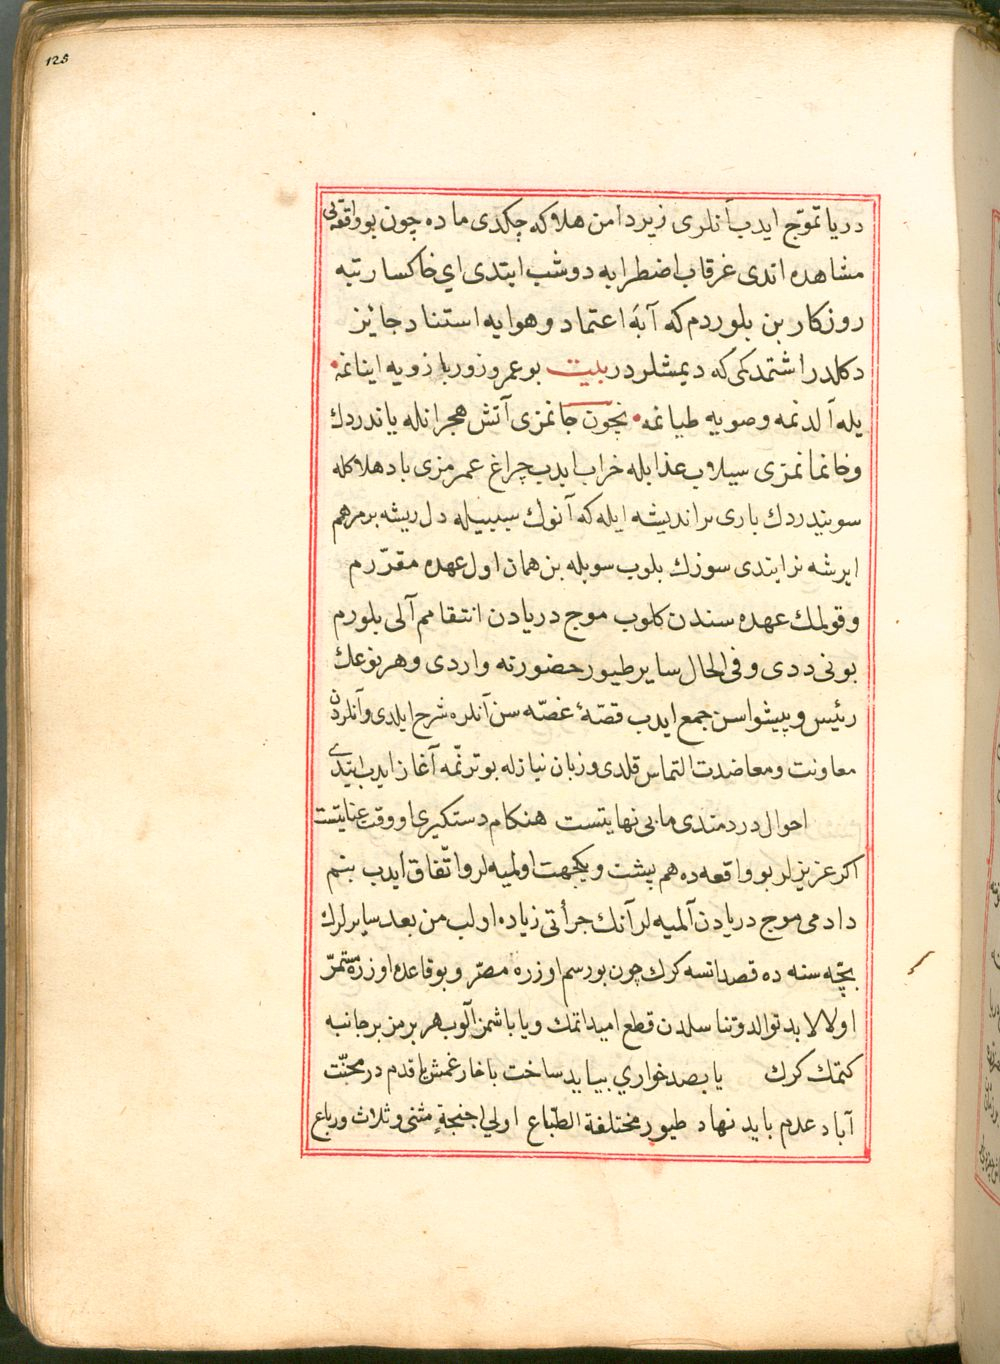 125
دریا تموّج ایدب آنلری زیر دامن هلاکه چکدی ماده چون بو واقعه‌یی
مشاهده اتدی غرقاب اضطرابه دوشب ایتدی ای خاکسار تبه
روزکار بن بلوردم که آبه اعتماد و هوایه استناد جائیز
دکلدر اشتمدکمی که دیمشلردر بیت بو عمر و زور بازویه اینانمه
یله آلدنمه و صویه طیانمه نچون جانمزی آتش هجرانله یاندردك
و خانمانمزی سیلاب عذابله خراب ایدب چراغ عمرمزی باد هلاکله
سویندردك باری بر اندیشه ایله که آنوك سببیله دل ریشه بر مرهم
ایرشه نر ایتدی سوزك بلوب سویله بن همان اول عهده مقرّرم
و قولمك عهده سندن کلوب موج دریادن انتقامم آلی بلورم
بونی ددی و فی الحال سایر طیور حضورنه واردی و هر نوعك
رئیس و پیشواسن جمع ایدب قصّهٔ غصّه سن آنلره شرح ایلدی و آنلردن
معاونت و معاضدت التماس قلدی و زبان نیازله بو ترنّمه آغاز ایدب ایتدی
احوال دردمندی ما بی نهایتست هنکام دستکیری و وقت عنایتست
اکر عزیزلر بو واقعه ده هم پشت و یکجهت اولمیه لر و اتّفاق ایدب بنم
دادمی موج دریادن آلمیه لر آنك جرأتی زیاده اولب من بعد سایرلرك
بچّه سنه ده قصد اتسه کرك چون بو رسم اوزره مصرّ و بو قاعده اوزره مستمرّ
اولا لابد توالد و تناسلدن قطع امید اتمك و یا باشمز آلوب هر برمز بر جانبه
کتمك کرك یا بصد خواری بباید ساخت با خار غمش یا قدم در محنّت
آباد عدم باید نهاد طیور مختلفة الطّباع اولی اجنحةٍ مثنی و ثلاث و رباع